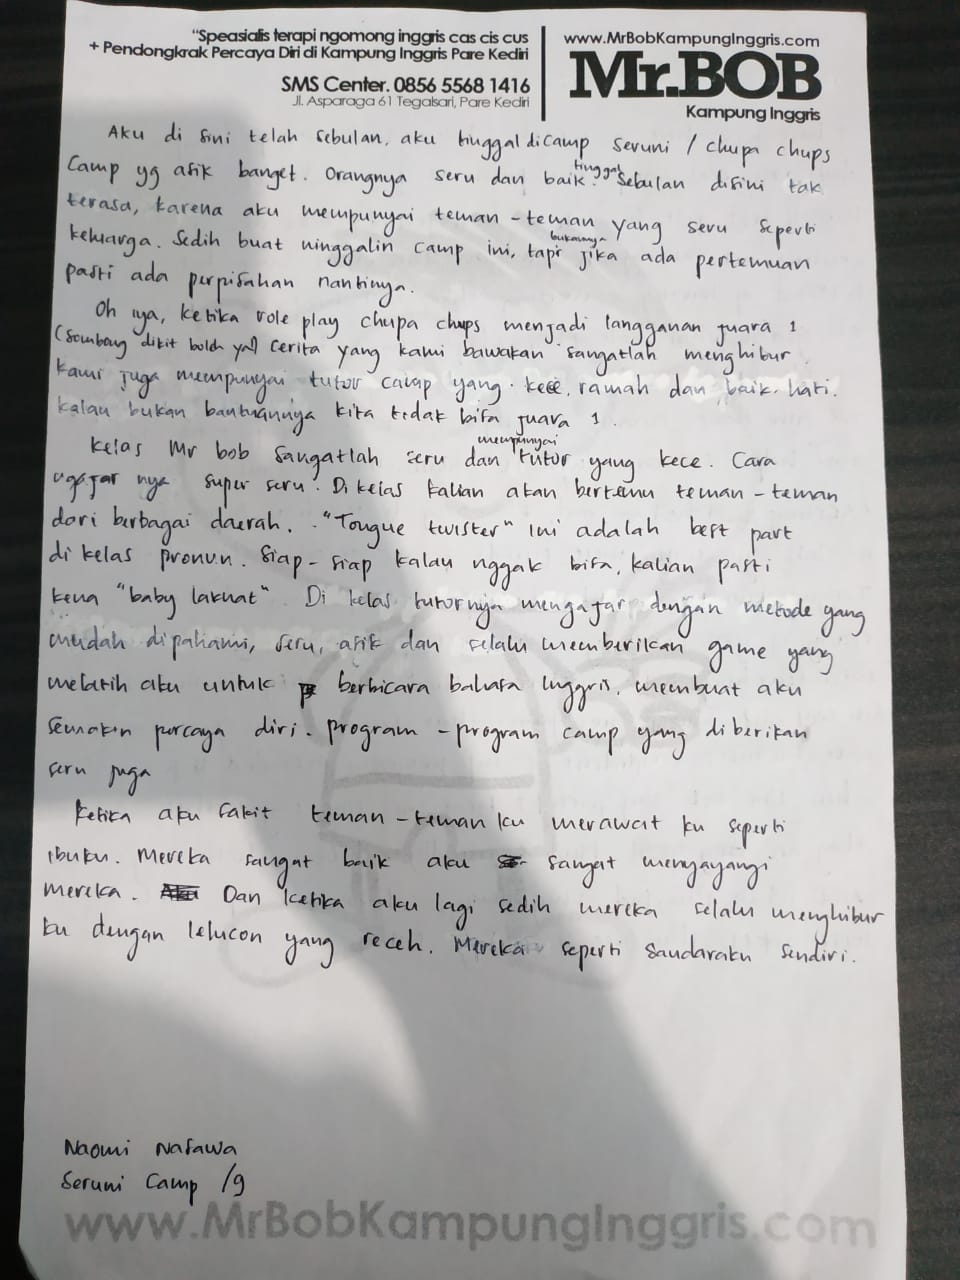 "Speasialis terapi ngomong inggris cas cis cus
+ Pendongkrak Percaya Diri di Kampung Inggris Pare Kediri
SMS Center. 0856 5568 1416
Jl. Asparaga 61 Tegalsari, Pare Kediri
www.MrBobKampungInggris.com
Mr.BOB
Kampung Inggris
Aku di sini telah sebulan, aku tinggal dicamp seruni / chupa chups
Camp yg asik banget. Orangnya seru dan baik. tinggal sebulan disini tak
terasa, karena aku mempunyai teman-teman yang seru seperti
keluarga. Sedih buat ninggalin camp ini, tapi bukannya jika ada pertemuan
pasti ada perpisahan nantinya.
Oh iya, ketika role play chupa chups menjadi langganan juara 1
(Sombong dikit boleh ya) cerita yang kami bawakan sangatlah menghibur.
kami juga mempunyai tutor camp yang kece, ramah dan baik hati.
kalau bukan bantuannya kita tidak bisa juara 1.
Kelas Mr bob sangatlah seru dan mempunyai tutor yang kece. Cara
ngajar nya super seru. Di kelas kalian akan bertemu teman-teman
dari berbagai daerah. "Tongue twister" ini adalah best part
di kelas pronun. Siap-siap kalau nggak bisa, kalian pasti
kena "baby laknat". Di kelas tutornya mengajar dengan metode yang
mudah dipahami, seru, asik dan selalu memberikan game yang
melatih aku untuk berbicara bahasa Inggris, membuat aku
semakin percaya diri. program-program camp yang diberikan
seru juga
Ketika aku sakit teman-teman ku merawat ku seperti
ibuku. Mereka sangat baik aku sangat menyayangi
mereka. Dan ketika aku lagi sedih mereka selalu menghibur
ku dengan lelucon yang receh. Mereka seperti saudaraku sendiri.
Naomi Nafawa
Seruni Camp /9
www.MrBobKampungInggris.com